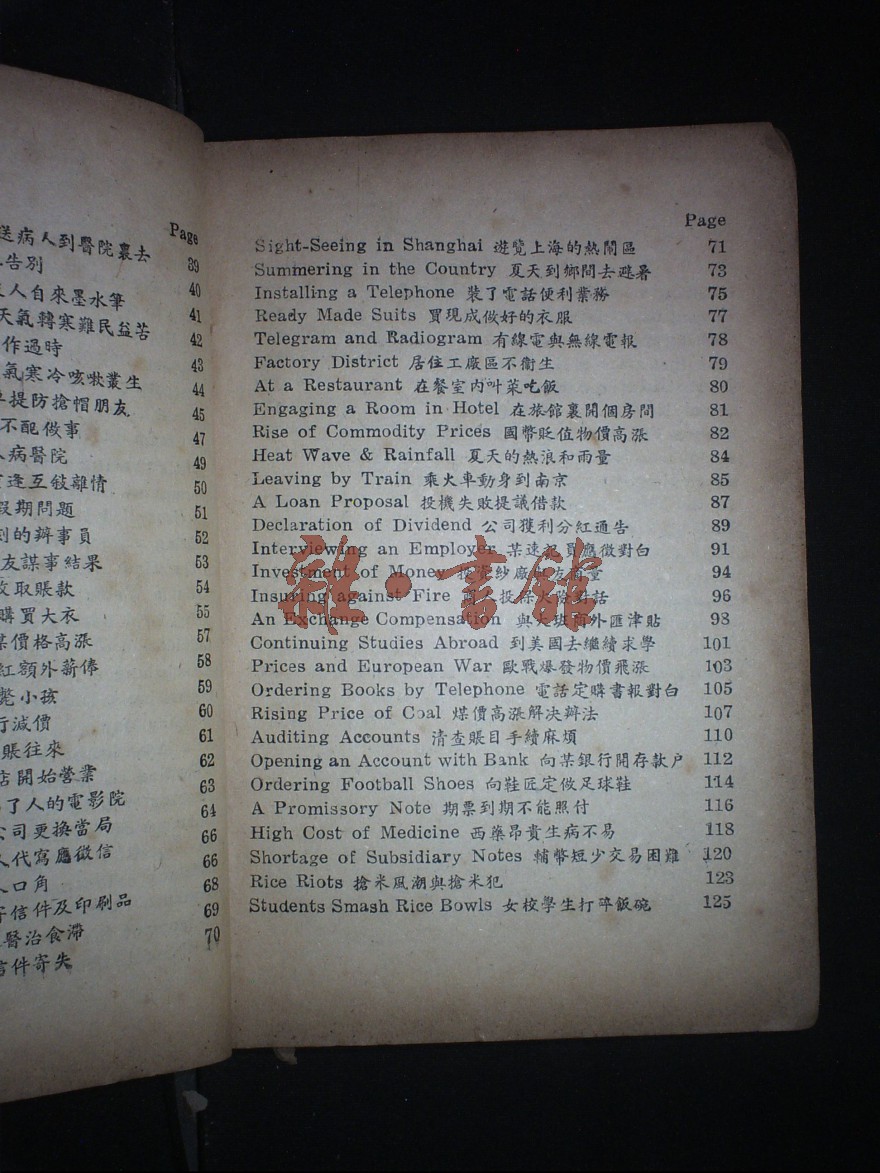 Page
送病人到醫院裏去
告別 39
人自來墨水筆 40
天氣轉寒難民益苦 41
作過時 42
氣寒冷咳嗽叢生 43
提防搶帽朋友 44
不配做事 45
病醫院 47
逢互敍離情 49
假期問題 50
的辦事員 51
友謀事結果 52
收取賬款 53
購買大衣 54
煤價格高漲 55
紅額外薪俸 57
斃小孩 58
行減價 59
賬往來 60
店開始營業 61
了人的電影院 62
公司更換當局 63
人代寫應徵信 64
人口角 66
寄信件及印刷品 66
醫治食滯 68
信件寄失 69
70
Page
Sight-Seeing in Shanghai 遊覽上海的熱鬧區 71
Summering in the Country 夏天到鄉間去避暑 73
Installing a Telephone 裝了電話便利業務 75
Ready Made Suits 買現成做好的衣服 77
Telegram and Radiogram 有線電與無線電報 78
Factory District 居住工廠區不衞生 79
At a Restaurant 在餐室內叫菜吃飯 80
Engaging a Room in Hotel 在旅館裏開個房間 81
Rise of Commodity Prices 國幣貶值物價高漲 82
Heat Wave & Rainfall 夏天的熱浪和雨量 84
Leaving by Train 乘火車動身到南京 85
A Loan Proposal 投機失敗提議借款 87
Declaration of Dividend 公司獲利分紅通告 89
Interviewing an Employer 某速記員應徵對白 91
Investment of Money 投資紗廠 友商量 94
Insuring against Fire 人投保火險對話 96
An Exchange Compensation 與大班商外匯津貼 98
Continuing Studies Abroad 到美國去繼續求學 101
Prices and European War 歐戰爆發物價飛漲 103
Ordering Books by Telephone 電話定購書報對白 105
Rising Price of Coal 煤價高漲解決辦法 107
Auditing Accounts 清查賬目手續麻煩 110
Opening an Account with Bank 向某銀行開存款户 112
Ordering Football Shoes 向鞋匠定做足球鞋 114
A Promissory Note 期票到期不能照付 116
High Cost of Medicine 西藥昂貴生病不易 118
Shortage of Subsidiary Notes 輔幣短少交易困難 120
Rice Riots 搶米風潮與搶米犯 123
Students Smash Rice Bowls 女校學生打碎飯碗 125